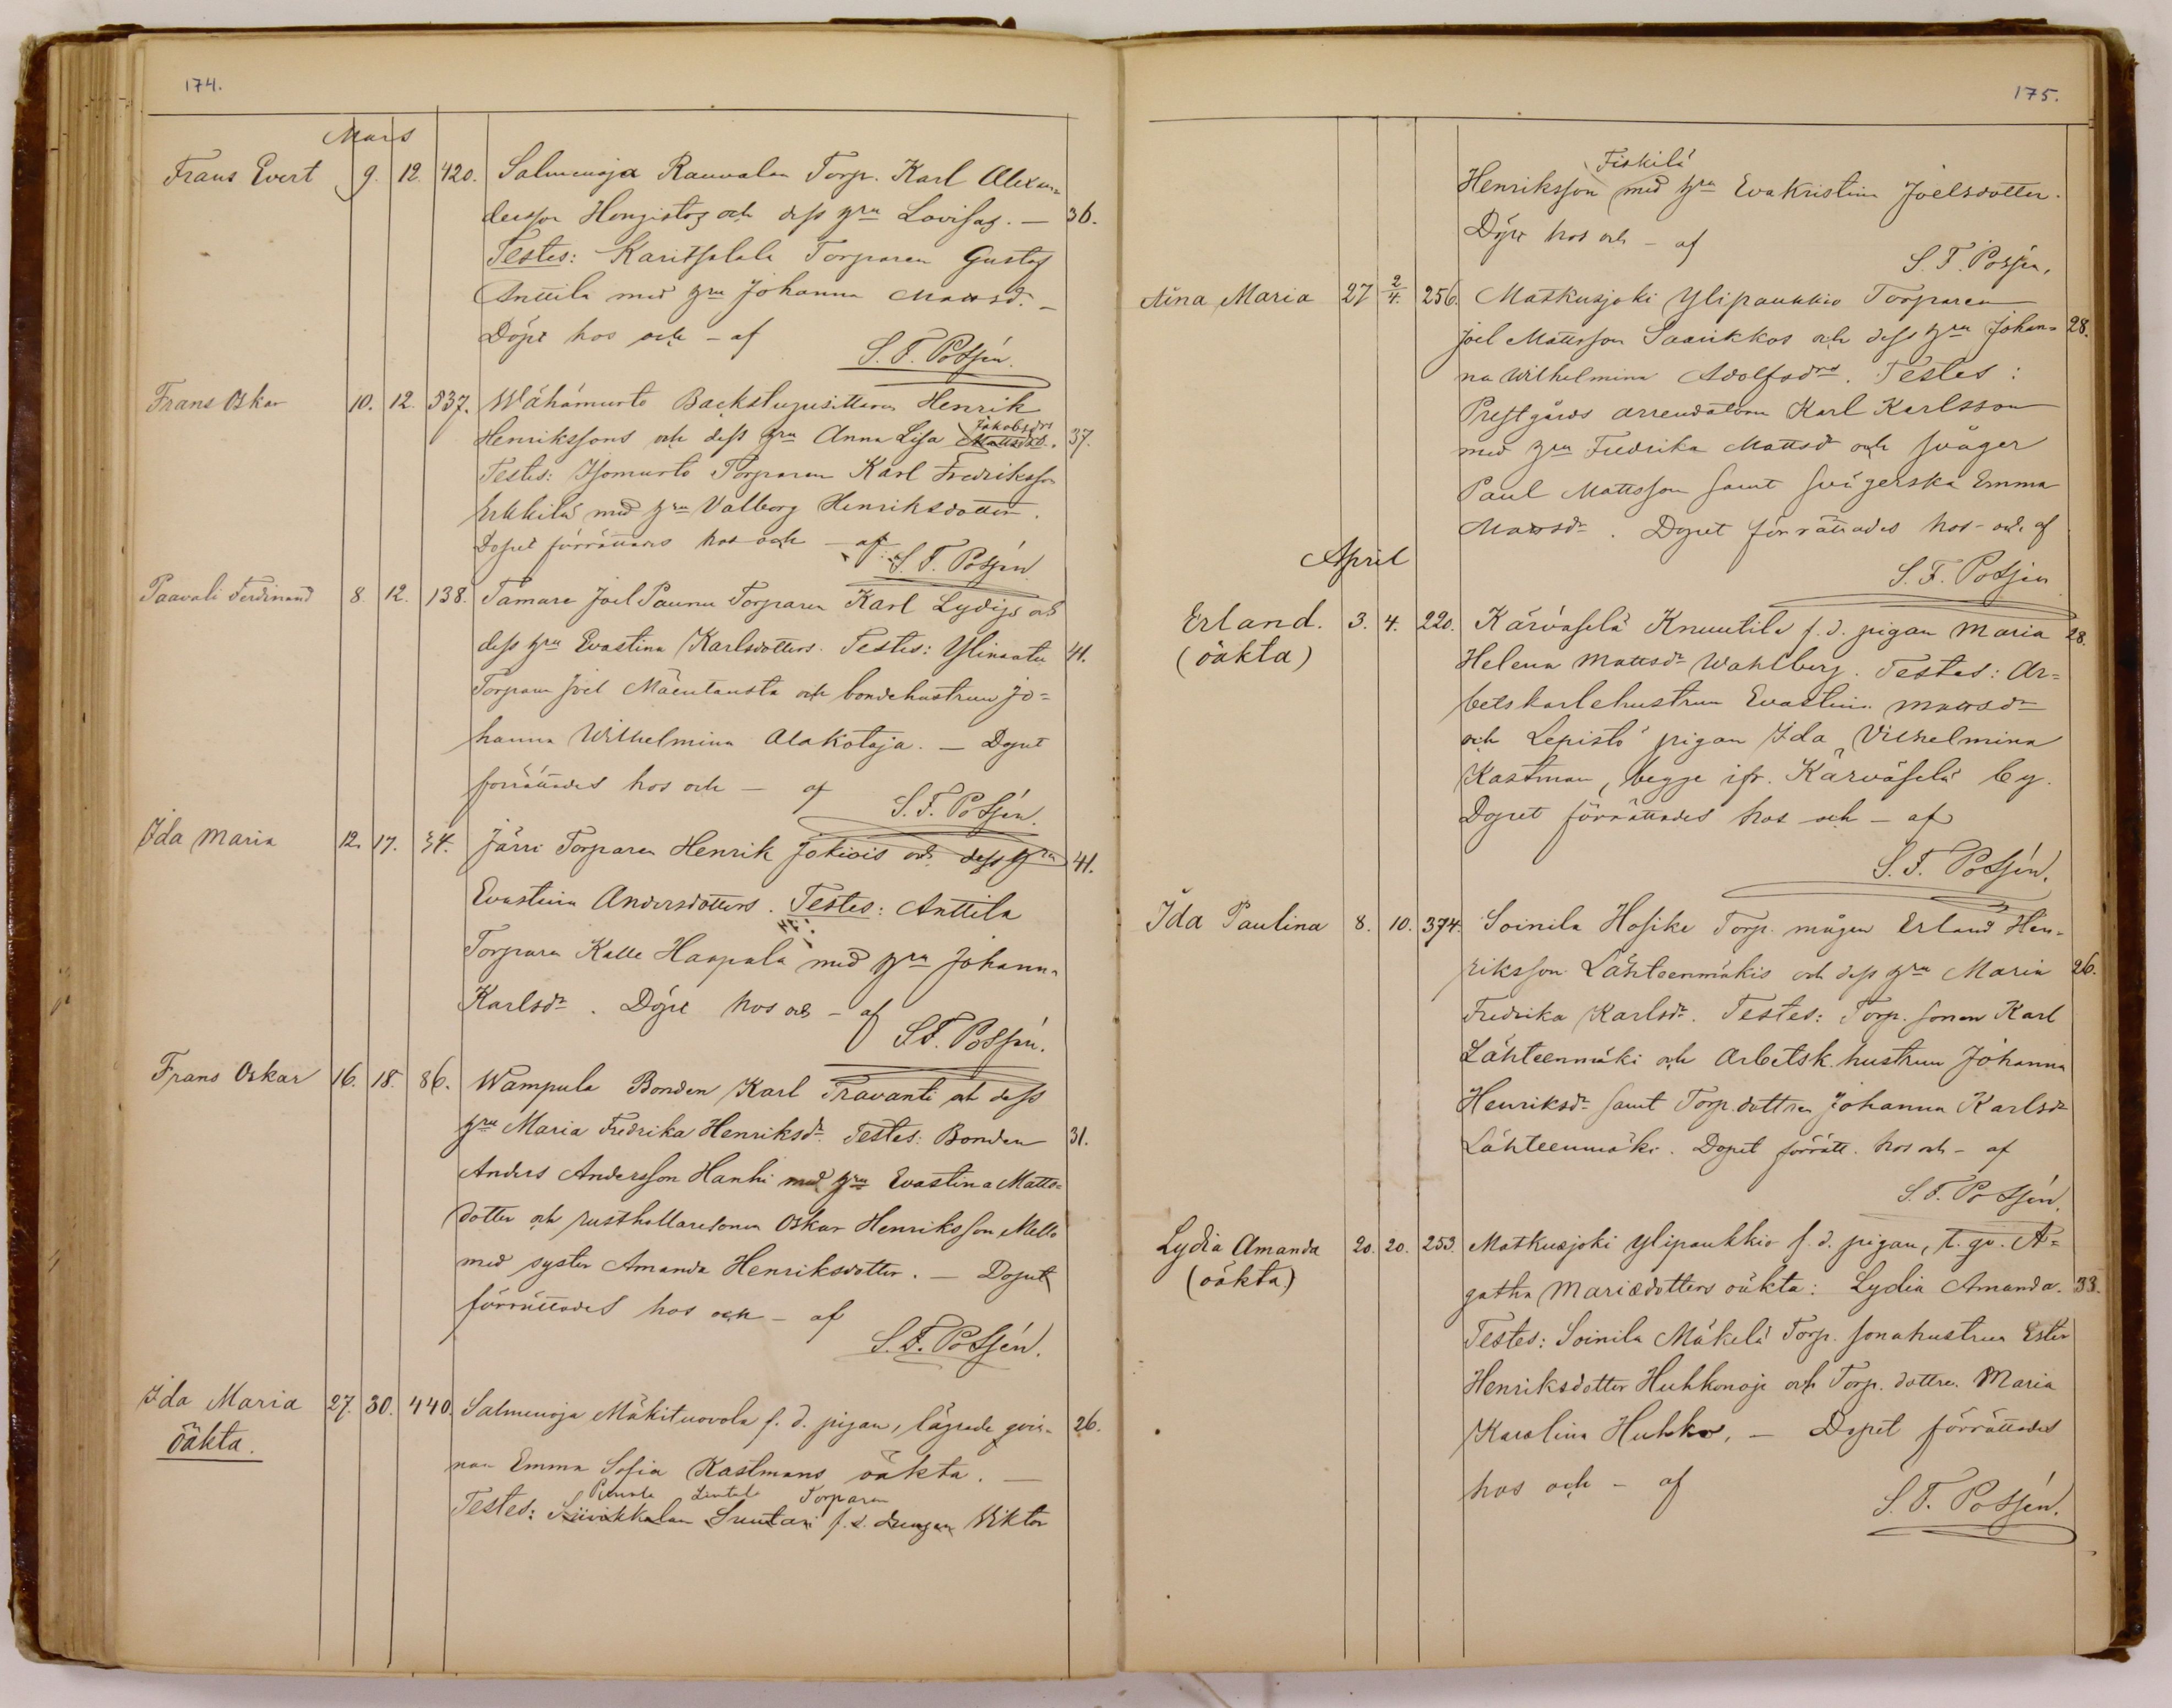 174.
Mars
Frans Evert 9. 12. 420. Salmenoja Rauvalan Torp. Karl Alexan-
dersson Hongistos och dess hru Lovisas. — 36.
Testes: Karitsalala Torparen Gustaf
Anttila med hru Johanna Mattsdr. —
Döpt hos och – af
S. F. Potsén.
Frans Oskar 10. 12. 337. Wähämurto Backstugusittaren Henrik
Henrikssons och dess hru Anna Lisa Mattsdrs. Jakobsdrs 37.
Testes: Isomurto Torparen Karl Fredriksson
Erkkilä med hru Valborg Henriksdotter.
Dopet förrättades hos och – af
S. F. Potsén
Paavali Ferdinand 8. 12. 138. Tamare Joel Paunu Torparen Karl Lydigs och
dess hru Evastina Karlsdotters. Testes: Ylinaatu 41.
Torparen Joel Mäentausta och bondehustrun Jo=
hanna Wilhelmina Alakotaja. — Dopet
förrättades hos och – af
S. F. Potsén.
Ida Maria 12. 17. 34. Järvi Torparen Henrik Jokiois och dess hru 41.
Evastina Andersdotters. Testes: Anttila
Torparen Kalle Haapala med hru Johanna
Karlsdr. Döpt hos och – af
S. F. Potsén.
Frans Oskar 16. 18. 86. Wampula Bonden Karl Pravanti och dess
hru Maria Fredrika Henriksdr. Testes: Bonden 31.
Anders Andersson Hanhi med hru Evastina Matts=
dotter och rusthollaresonen Oskar Henriksson Mello
med syster Amanda Henriksdotter. — Dopet
förrättades hos och – af
S. F. Potsén.
Ida Maria 27. 30. 440. Salmenoja Mäkituovola f. d. pigan, lägrade qvin- 26.
oäkta.
nan Emma Sofia Kastmans oäkta. —
Lintala Torparen
Testes: Suutari f. d. drengen Viktor
175.
Fiskilä
Henriksson med hru Eva Kristina Joelsdotter.
Döpt hos och – af
S. F. Potsén.
Aina Maria 27 2/4. 256. Matkusjoki Ylipaukkio Torparen
Joel Mattsson Saarikkos och dess hru Johan= 28.
na Wilhelmina Adolfsdrs. Testes:
Prestgårds arrendatorn Karl Karlsson
med hru Fredrika Mattsdr och svåger
Paul Mattsson samt svägerska Emma
Mattsdr. Dopet förrättades hos – och af
S. F. Potsén
April
Erland. 3. 4. 220. Kärväselä Knuutila f. d. pigan Maria 28.
(oäkta)
Helena Mattsdr Wahlberg. Testes: Ar=
betskarlehustrun Evastina Mattsdr
och Lepistö pigan Ida Vilhelmina
Kastman, begge ifr. Kärväselä by.
Dopet förrättades hos och – af
S. F. Potsén.
Ida Paulina 8. 10. 374. Soinila Hosike Torp. mågen Erland Hen-
riksson Lähteenmäkis och dess hru Maria 26.
Fredrika Karlsdr. Testes: Torp. sonen Karl
Lähteenmäki och Arbetsk. hustrun Johanna
Henriksdr samt Torp. dottren Johanna Karlsdr
Lähteenmäki. Dopet förrätt. hos och – af
S. F. Potsén.
Lydia Amanda 20. 20. 253. Matkusjoki Ylipaukkio f. d. pigan, t. qv. A=
(oäkta)
gatha Mariædotters oäkta: Lydia Amanda. 33.
Testes: Soinila Mäkelä Torp. sonahustrun Ester
Henriksdotter Huhkonoja och Torp. dottren Maria
Karolina Huhko. — Dopet förrättades
hos och – af
S. F. Potsén.